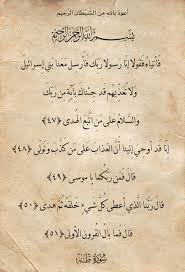 أعوذ بالله من الشيطان الرجيم
بسم الله الرحمن الرحيم
فأتياه فقولا إنا رسولا ربك فأرسل معنا بني إسرائيل
ولا تعذبهم قد جئناك بآية من ربك
والسلام على من اتبع الهدى ﴿٤٧﴾
إنا قد أوحي إلينا أن العذاب على من كذب وتولى ﴿٤٨﴾
قال فمن ربكما يا موسى ﴿٤٩﴾
قال ربنا الذي أعطى كل شيء خلقه ثم هدى ﴿٥٠﴾
قال فما بال القرون الأولى ﴿٥١﴾
سورة طه